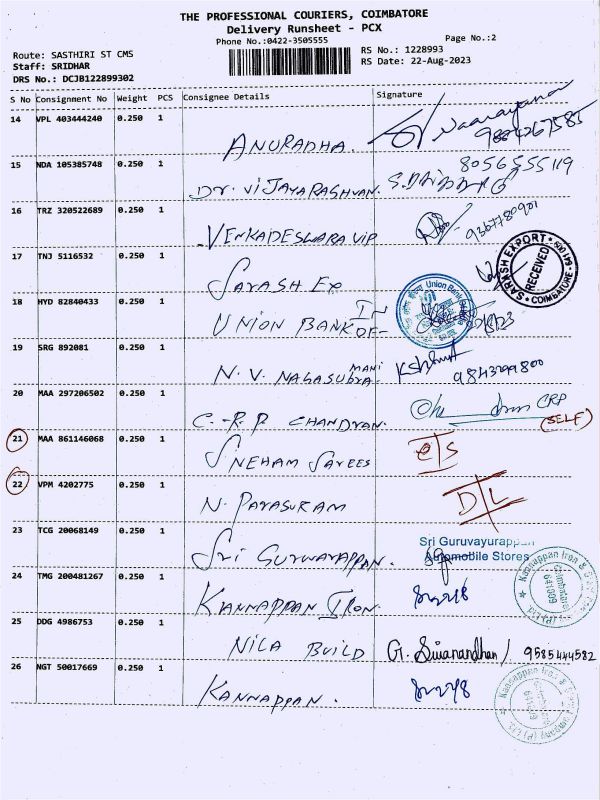 THE PROFESSIONAL COURIERS, COIMBATORE
Delivery Runsheet - PCX
Phone No.:0422-3505555
Page No.:2
Route: SASTHIRI ST CMS
Staff: SRIDHAR
DRS No.: DCJB122899302
RS No.: 1228993
RS Date: 22-Aug-2023
S No Consignment No Weight PCS Consignee Details Signature
14 VPL 403444240 0.250 1
ANURADHA. Naarayanan
9884267585
15 NDA 105385748 0.250 1
8056555119
Dr. VIJAYARASHVAN.
16 TRZ 320522689 0.250 1
VENKADESWARA VIP 9367780901
17 TNJ 5116532 0.250 1
SAYASH EX
SARYASH EXPORT
RECEIVED
COIMBATORE
18 HYD 82840433 0.250 1
UNION BANK OF IN
Union Bank
19 SRG 892081 0.250 1
N. V. NAGASUBRAMANI 9843299800
20 MAA 297206502 0.250 1
C.R.P CHANDRAN. CRP
(SELF)
21 MAA 861146068 0.250 1
SNEHAM SAREES
22 VPM 4202775 0.250 1
N. PARASURAM D/L
23 TCG 20068149 0.250 1
SRI GURUVAYAPPAN.
Sri Guruvayurappan
Automobile Stores
24 TMG 200481267 0.250 1
KANNAPPAN IRON.
Kannappan Iron &
Coimbatore
641009
25 DDG 4986753 0.250 1
NILA BUILD G. Sivanandhan / 9585444582
26 NGT 50017669 0.250 1
KANNAPPAN.
Kannappan Iron &
Coimbatore
641009